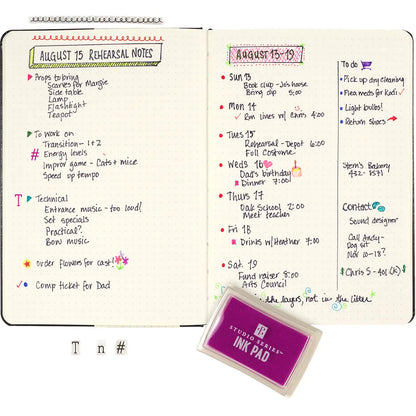 AUGUST 15 REHEARSAL NOTES
Props to bring
Scarves for Margie
Side table
Lamp
Flashlight
Teapot
To work on
Transition - 1+2
# Energy levels
Improv game - Cats + mice
Speed up tempo
T Technical
Entrance music - too loud!
Set specials
Practical?
Bow music
Order flowers for cast!
Comp ticket for Dad
AUGUST 13-19
SUN 13
Book club - Jo's house
Bring dip 5:00
Mon 14
Run lines w/ Chris 4:00
Tues 15
Rehearsal - Depot 6:00
Full Costume
Weds 16
Dad's birthday
Dinner 7:00
Thurs 17
Oak School 2:00
Meet teacher
Fri 18
Drinks w/ Heather 7:00
Sat. 19
Fund raiser 8:00
Arts Council
in the layers, not in the litter
To do
Pick up dry cleaning
Flea meds for Kali
Light bulbs!
Return shoes
Stern's Bakery
432-7571
Contact
Sound designer
Call Andy-
Dog sit
Nov 10-18?
STUDIO SERIES™
INK PAD
T n #